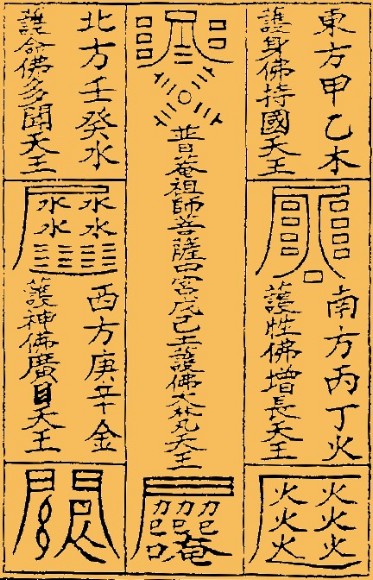 東方甲乙木
護身佛持國天王
南方丙丁火
護性佛增長天王
火火火
火火火
普庵祖師菩薩中宮戊己土護佛大梵天王
庵
北方壬癸水
護命佛多聞天王
水水
水水
西方庚辛金
護神佛廣目天王